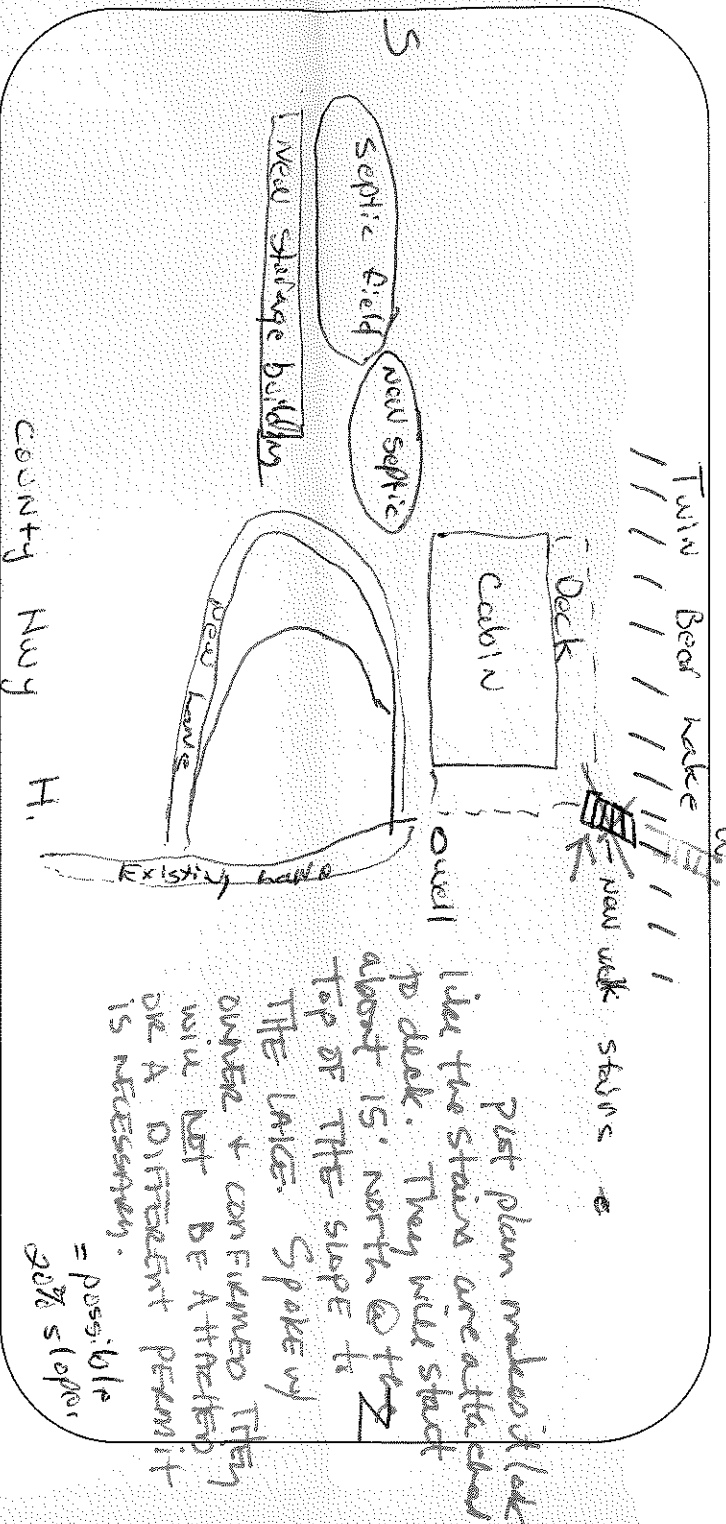 W
Twin Bear Lake
new walk stairs
S
septic field
new septic
Deck
Cabin
New storage building
o well
New Lane
Existing Lane
County Hwy H.
N
plot plan makes it look
like the stairs are attached
to deck. They will start
about 15' north @ the
TOP OF THE SLOPE to
THE LAKE. Spoke w/
OWNER + CONFIRMED THEY
WILL NOT BE ATTACHED
OR A DIFFERENT PERMIT
IS NECESSARY.
= possible
20% slope